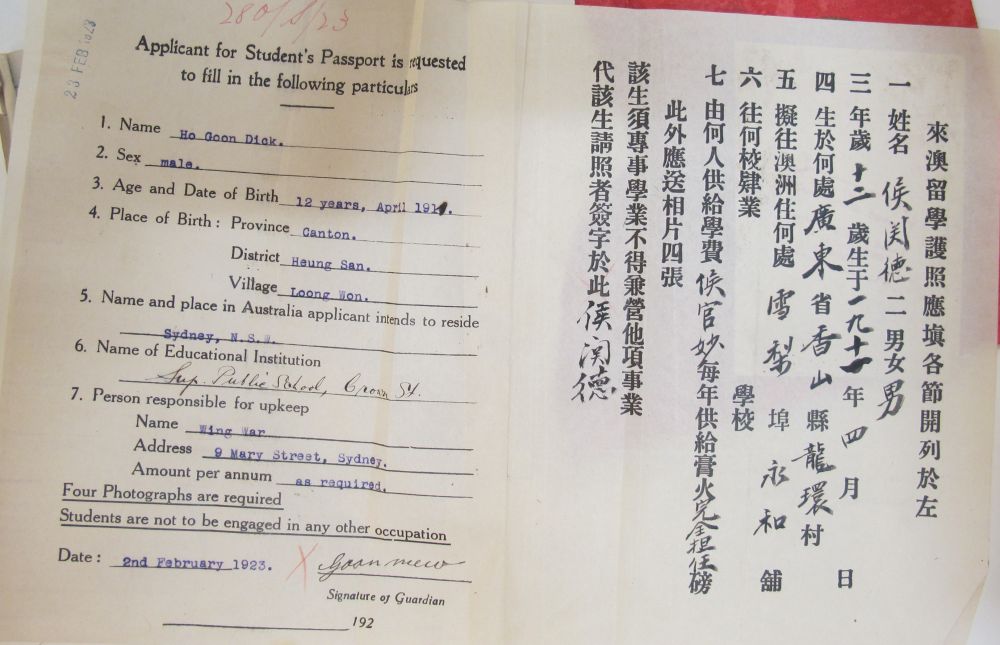 280/S/23
23 FEB 1923
Applicant for Student's Passport is requested
to fill in the following particulars
1. Name Ho Goon Dick.
2. Sex male.
3. Age and Date of Birth 12 years, April 1911.
4. Place of Birth: Province Canton.
District Heung San.
Village Loong Won.
5. Name and place in Australia applicant intends to reside
Sydney, N.S.W.
6. Name of Educational Institution
Sup. Public School, Crown St.
7. Person responsible for upkeep
Name Wing War
Address 9 Mary Street, Sydney.
Amount per annum as required.
Four Photographs are required
Students are not to be engaged in any other occupation
Date: 2nd February 1923. X Goon mew
Signature of Guardian
192
來澳留學護照應填各節開列於左
一 姓名 侯関德 二 男女 男
三 年歲 十二 歲生于一九十一年 四 月 日
四 生於何處 廣東 省 香山 縣 龍環 村
五 擬往澳洲住何處 雪梨 埠 永和 舖
六 往何校肄業 學校
七 由何人供給學費 侯官妙 每年供給膏火 完全担任 磅
此外應送相片四張
該生須專事學業不得兼營他項事業
代該生請照者簽字於此 侯関德